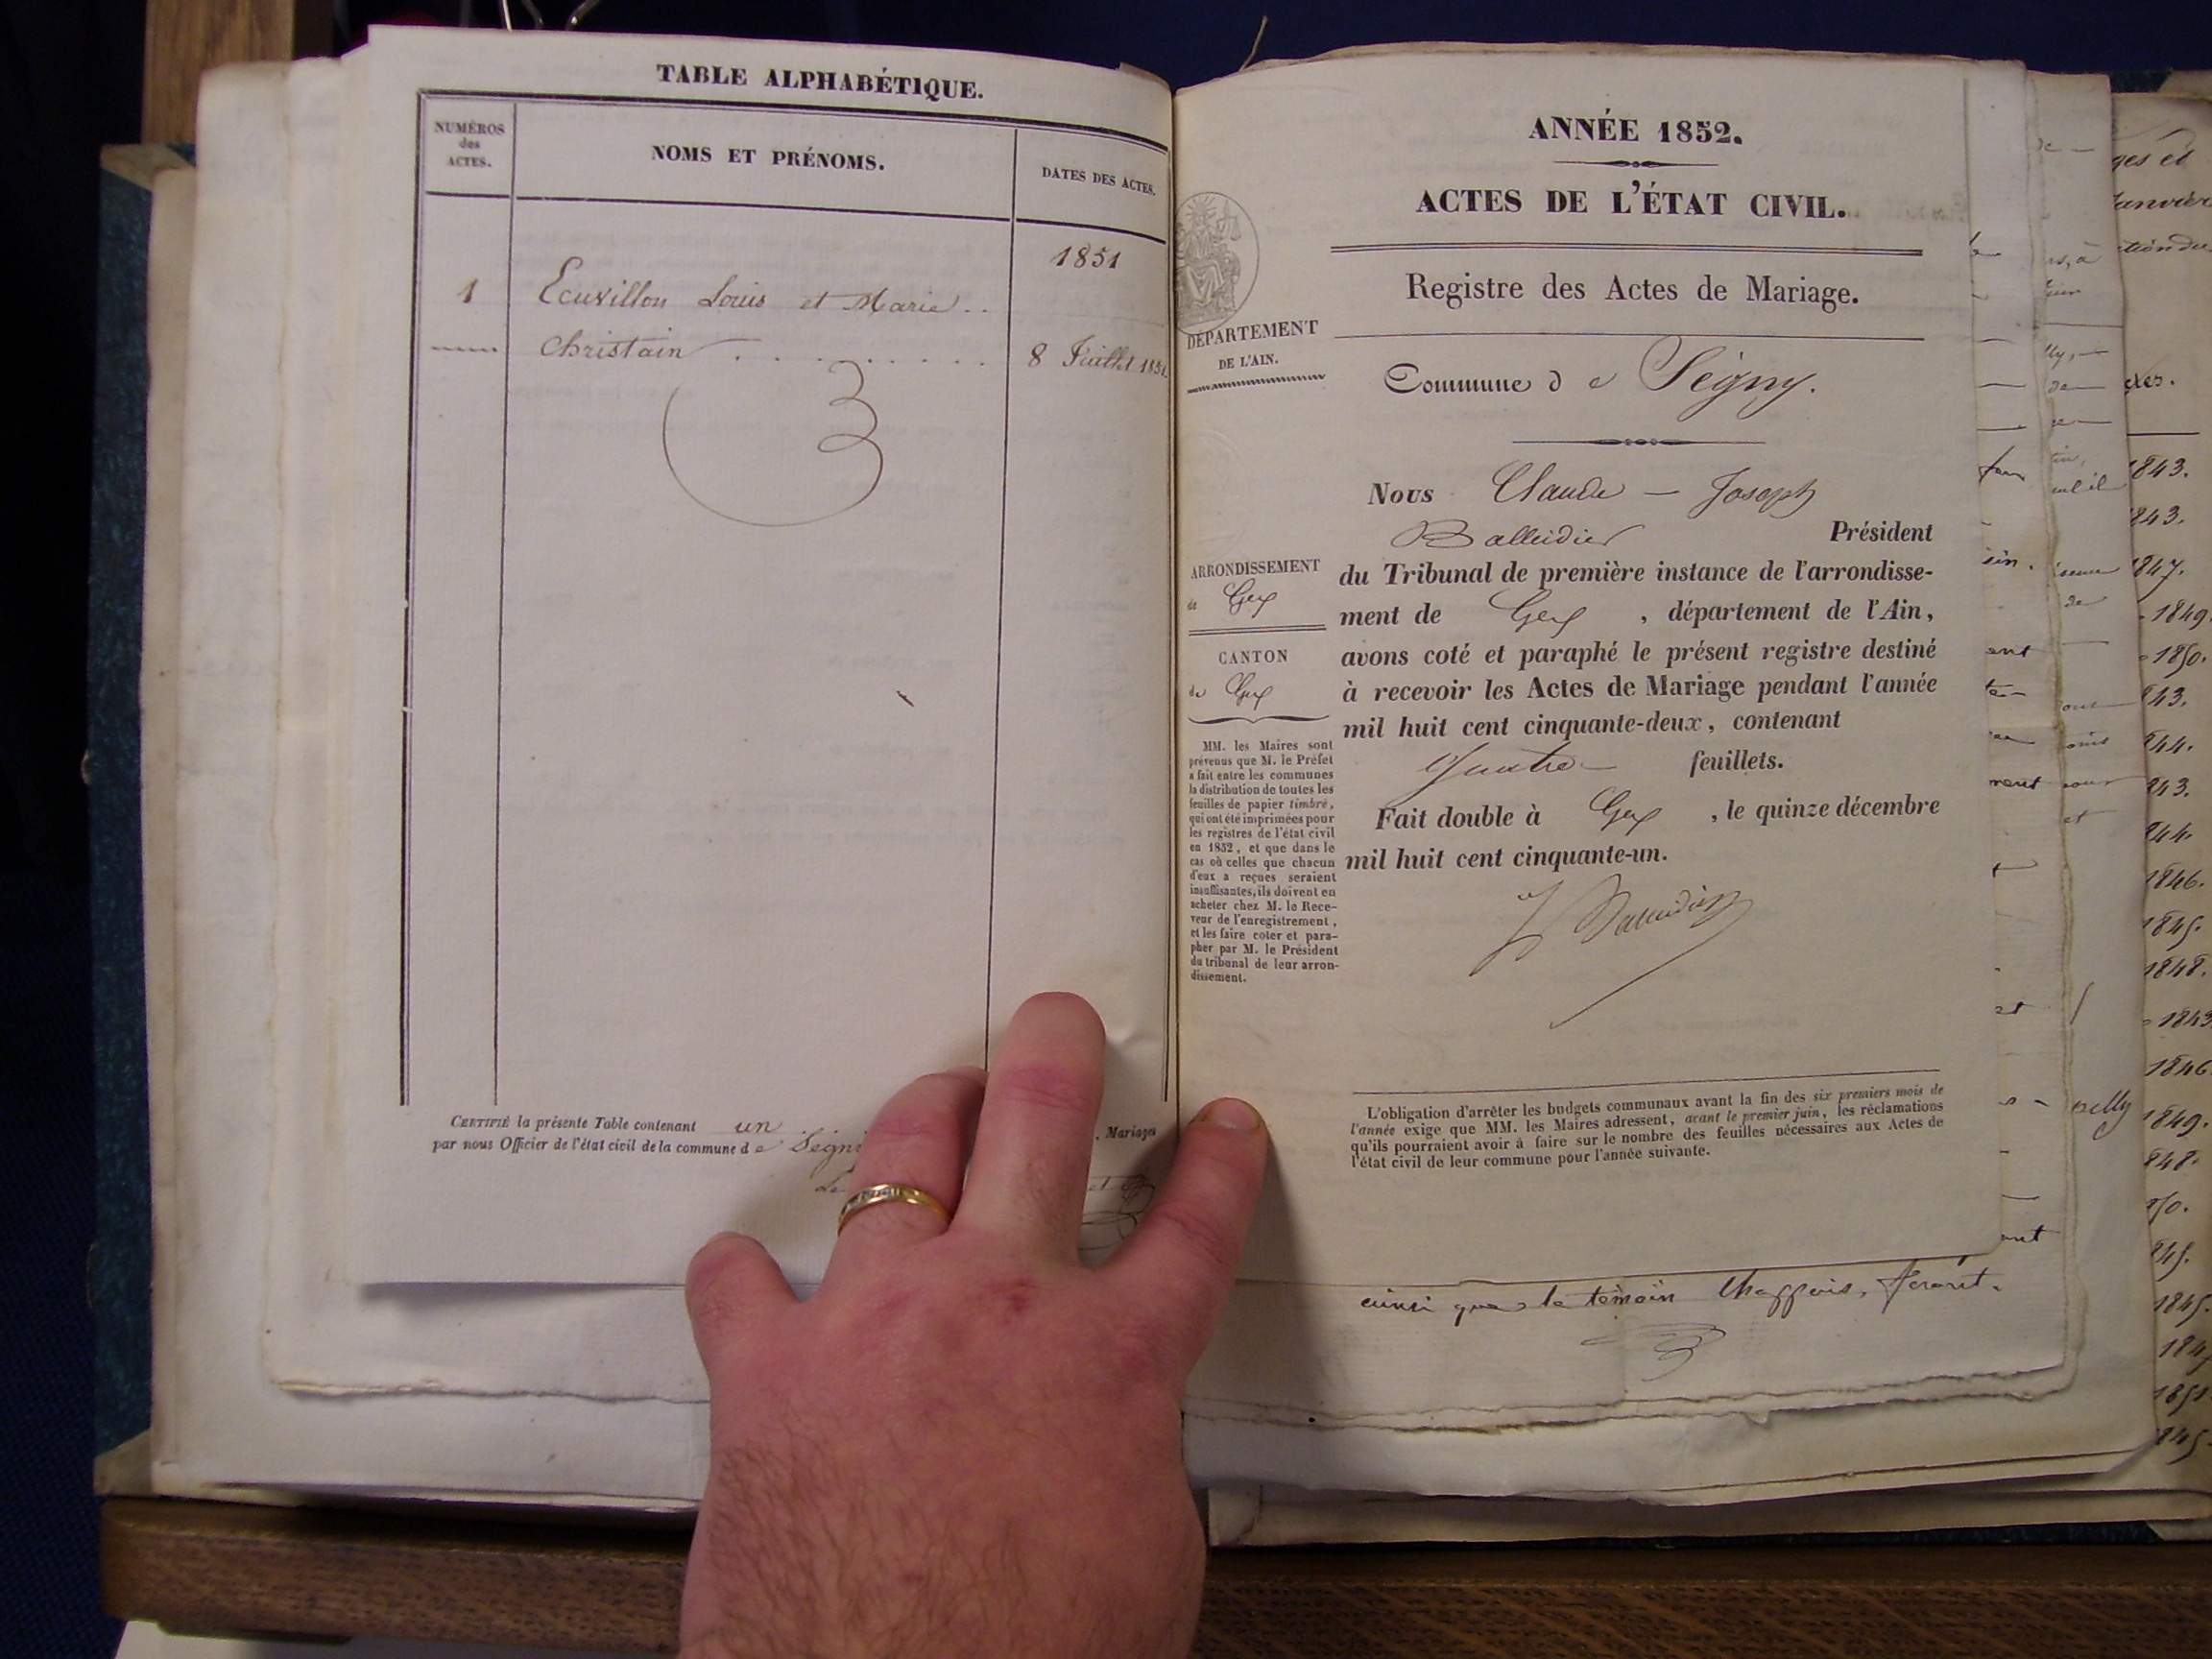 TABLE ALPHABÉTIQUE.
NUMÉROS
des
ACTES.
NOMS ET PRÉNOMS.
DATES DES ACTES.
1851
1 Ecuvillon Louis et Marie ..
Christain . . . . . . . . . 8 Juillet 1851.
CERTIFIÉ la présente Table contenant un
, Mariages
par nous Officier de l'état civil de la commune de Ségni
Le
et
ANNÉE 1852.
ACTES DE L'ÉTAT CIVIL.
Registre des Actes de Mariage.
DÉPARTEMENT
DE L'AIN.
Commune de Ségny.
Nous Claude – Joseph
Balleidier Président
du Tribunal de première instance de l'arrondisse-
ment de Gex , département de l'Ain,
avons coté et paraphé le présent registre destiné
à recevoir les Actes de Mariage pendant l'année
mil huit cent cinquante-deux, contenant
Quatre feuillets.
Fait double à Gex , le quinze décembre
mil huit cent cinquante-un.
Balleidier
ARRONDISSEMENT
de Gex
CANTON
de Gex
MM. les Maires sont
prévenus que M. le Préfet
a fait entre les communes
la distribution de toutes les
feuilles de papier timbré,
qui ont été imprimées pour
les registres de l'état civil
en 1852, et que dans le
cas où celles que chacun
d'eux a reçues seraient
insuffisantes, ils doivent en
acheter chez M. le Rece-
veur de l'enregistrement,
et les faire coter et para-
pher par M. le Président
du tribunal de leur arron-
dissement.
L'obligation d'arrêter les budgets communaux avant la fin des six premiers mois de
l'année exige que MM. les Maires adressent, avant le premier juin, les réclamations
qu'ils pourraient avoir à faire sur le nombre des feuilles nécessaires aux Actes de
l'état civil de leur commune pour l'année suivante.
ainsi que le témoin
ges et
Janvier
1843.
843.
1847.
1849.
1850.
843.
844.
843.
844.
1846.
1845.
1848.
1843
1846.
1849.
848.
850.
845.
1845.
184
1851
845.